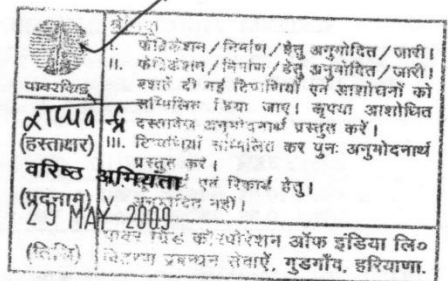 I. फेब्रिकेशन/निर्माण/हेतु अनुमोदित/जारी।
II. फेब्रिकेशन/निर्माण/हेतु अनुमोदित/जारी।
बशर्ते दी गई टिप्पणियों एवं आशोधनों को
सम्मिलित किया जाए। कृपया आशोधित
दस्तावेज अनुमोदनार्थ प्रस्तुत करें।
III. टिप्पणियाँ सम्मिलित कर पुनः अनुमोदनार्थ
प्रस्तुत करें।
एवं रिकार्ड हेतु।
अनुमोदित नहीं।
पावरग्रिड
(हस्ताक्षर)
वरिष्ठ अभियंता
(पदनाम)
29 MAY 2009
(तिथि)
पावर ग्रिड कॉरपोरेशन ऑफ इंडिया लि०
प्रबन्धन सेवाएँ, गुडगाँव, हरियाणा.